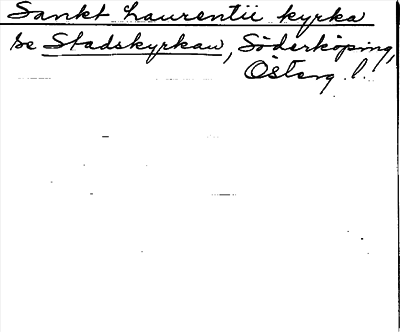 Sankt Laurentii kyrka
se Stadskyrkan, Söderköping,
Österg. l.